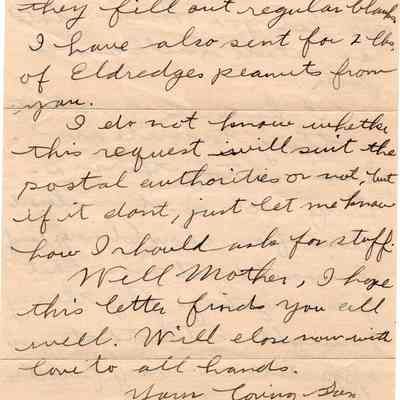 they fill out regular blanks
I have also sent for 2 lbs.
of Eldredges peanuts from
you.
I do not know whethe
this request will suit the
postal authorities or not but
if it dont, just let me know
how I should ask for stuff.
Well Mother, I hope
this letter finds you all
well. Will close now with
love to all hands.
Your loving Son